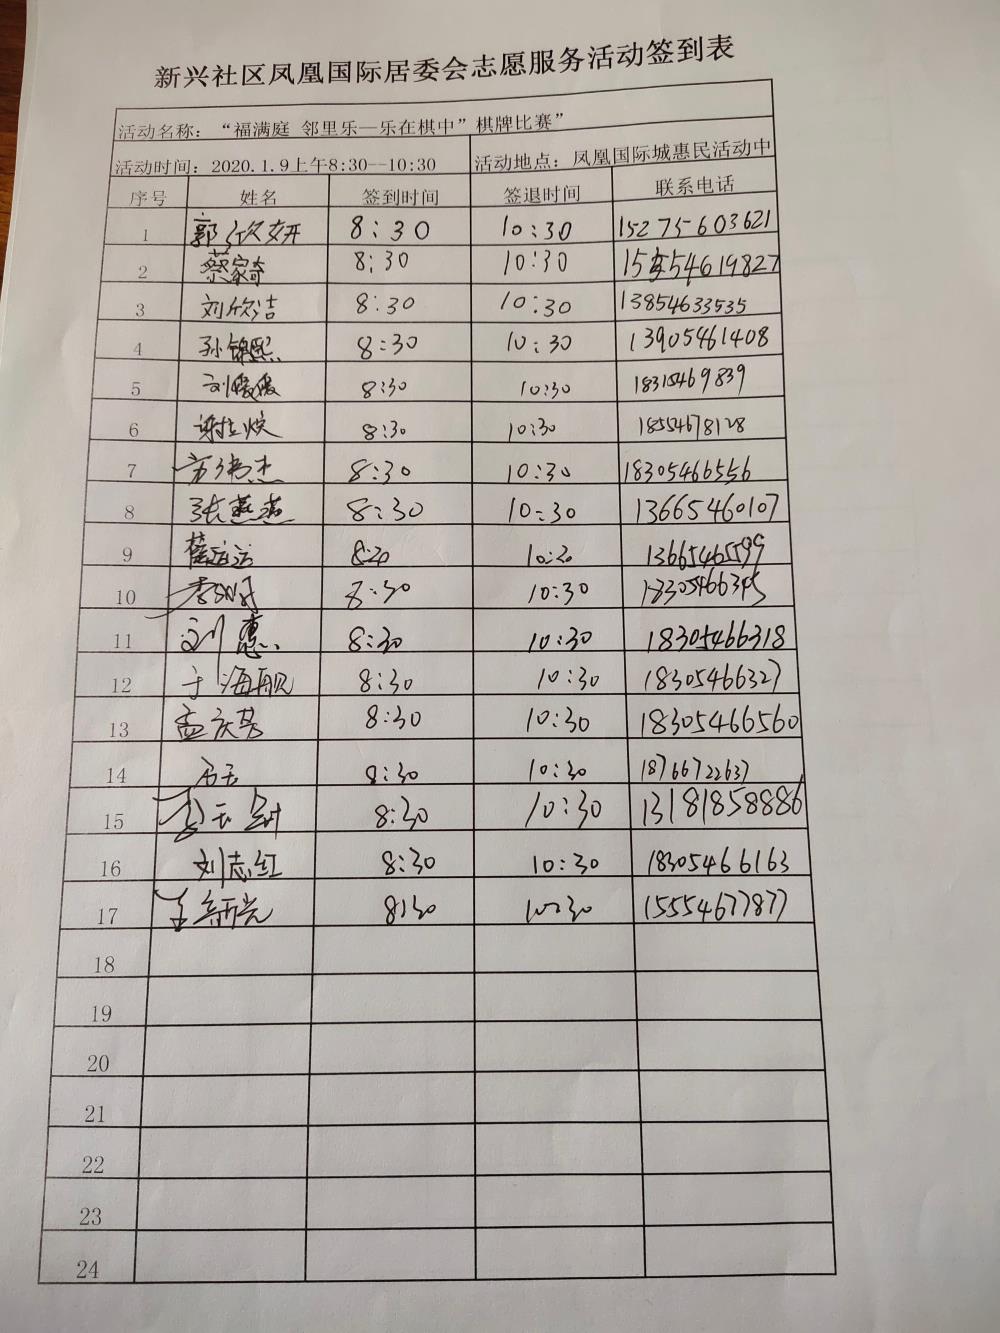 新兴社区凤凰国际居委会志愿服务活动签到表
活动名称：“福满庭 邻里乐—乐在棋中”棋牌比赛”
活动时间：2020.1.9上午8:30--10:30 活动地点：凤凰国际城惠民活动中
序号 姓名 签到时间 签退时间 联系电话
1 郭欣妍 8:30 10:30 15275603621
2 蔡家奇 8:30 10:30
3 刘欣洁 8:30 10:30 13854633535
4 孙锦熙 8:30 10:30 13905461408
5 刘媛媛 8:30 10:30 18315469839
6 8:30 10:30 18554678128
7 8:30 10:30 18305466556
8 张燕燕 8:30 10:30 13665460107
9 8:30 10:30 13665465599
10 8:30 10:30 18305466345
11 刘惠 8:30 10:30 18305466318
12 于海舰 8:30 10:30 18305466327
13 孟庆芳 8:30 10:30 18305466560
14 8:30 10:30 18766722637
15 8:30 10:30 13181858886
16 刘志红 8:30 10:30 18305466163
17 王新光 8:30 10:30 15554677877
18
19
20
21
22
23
24